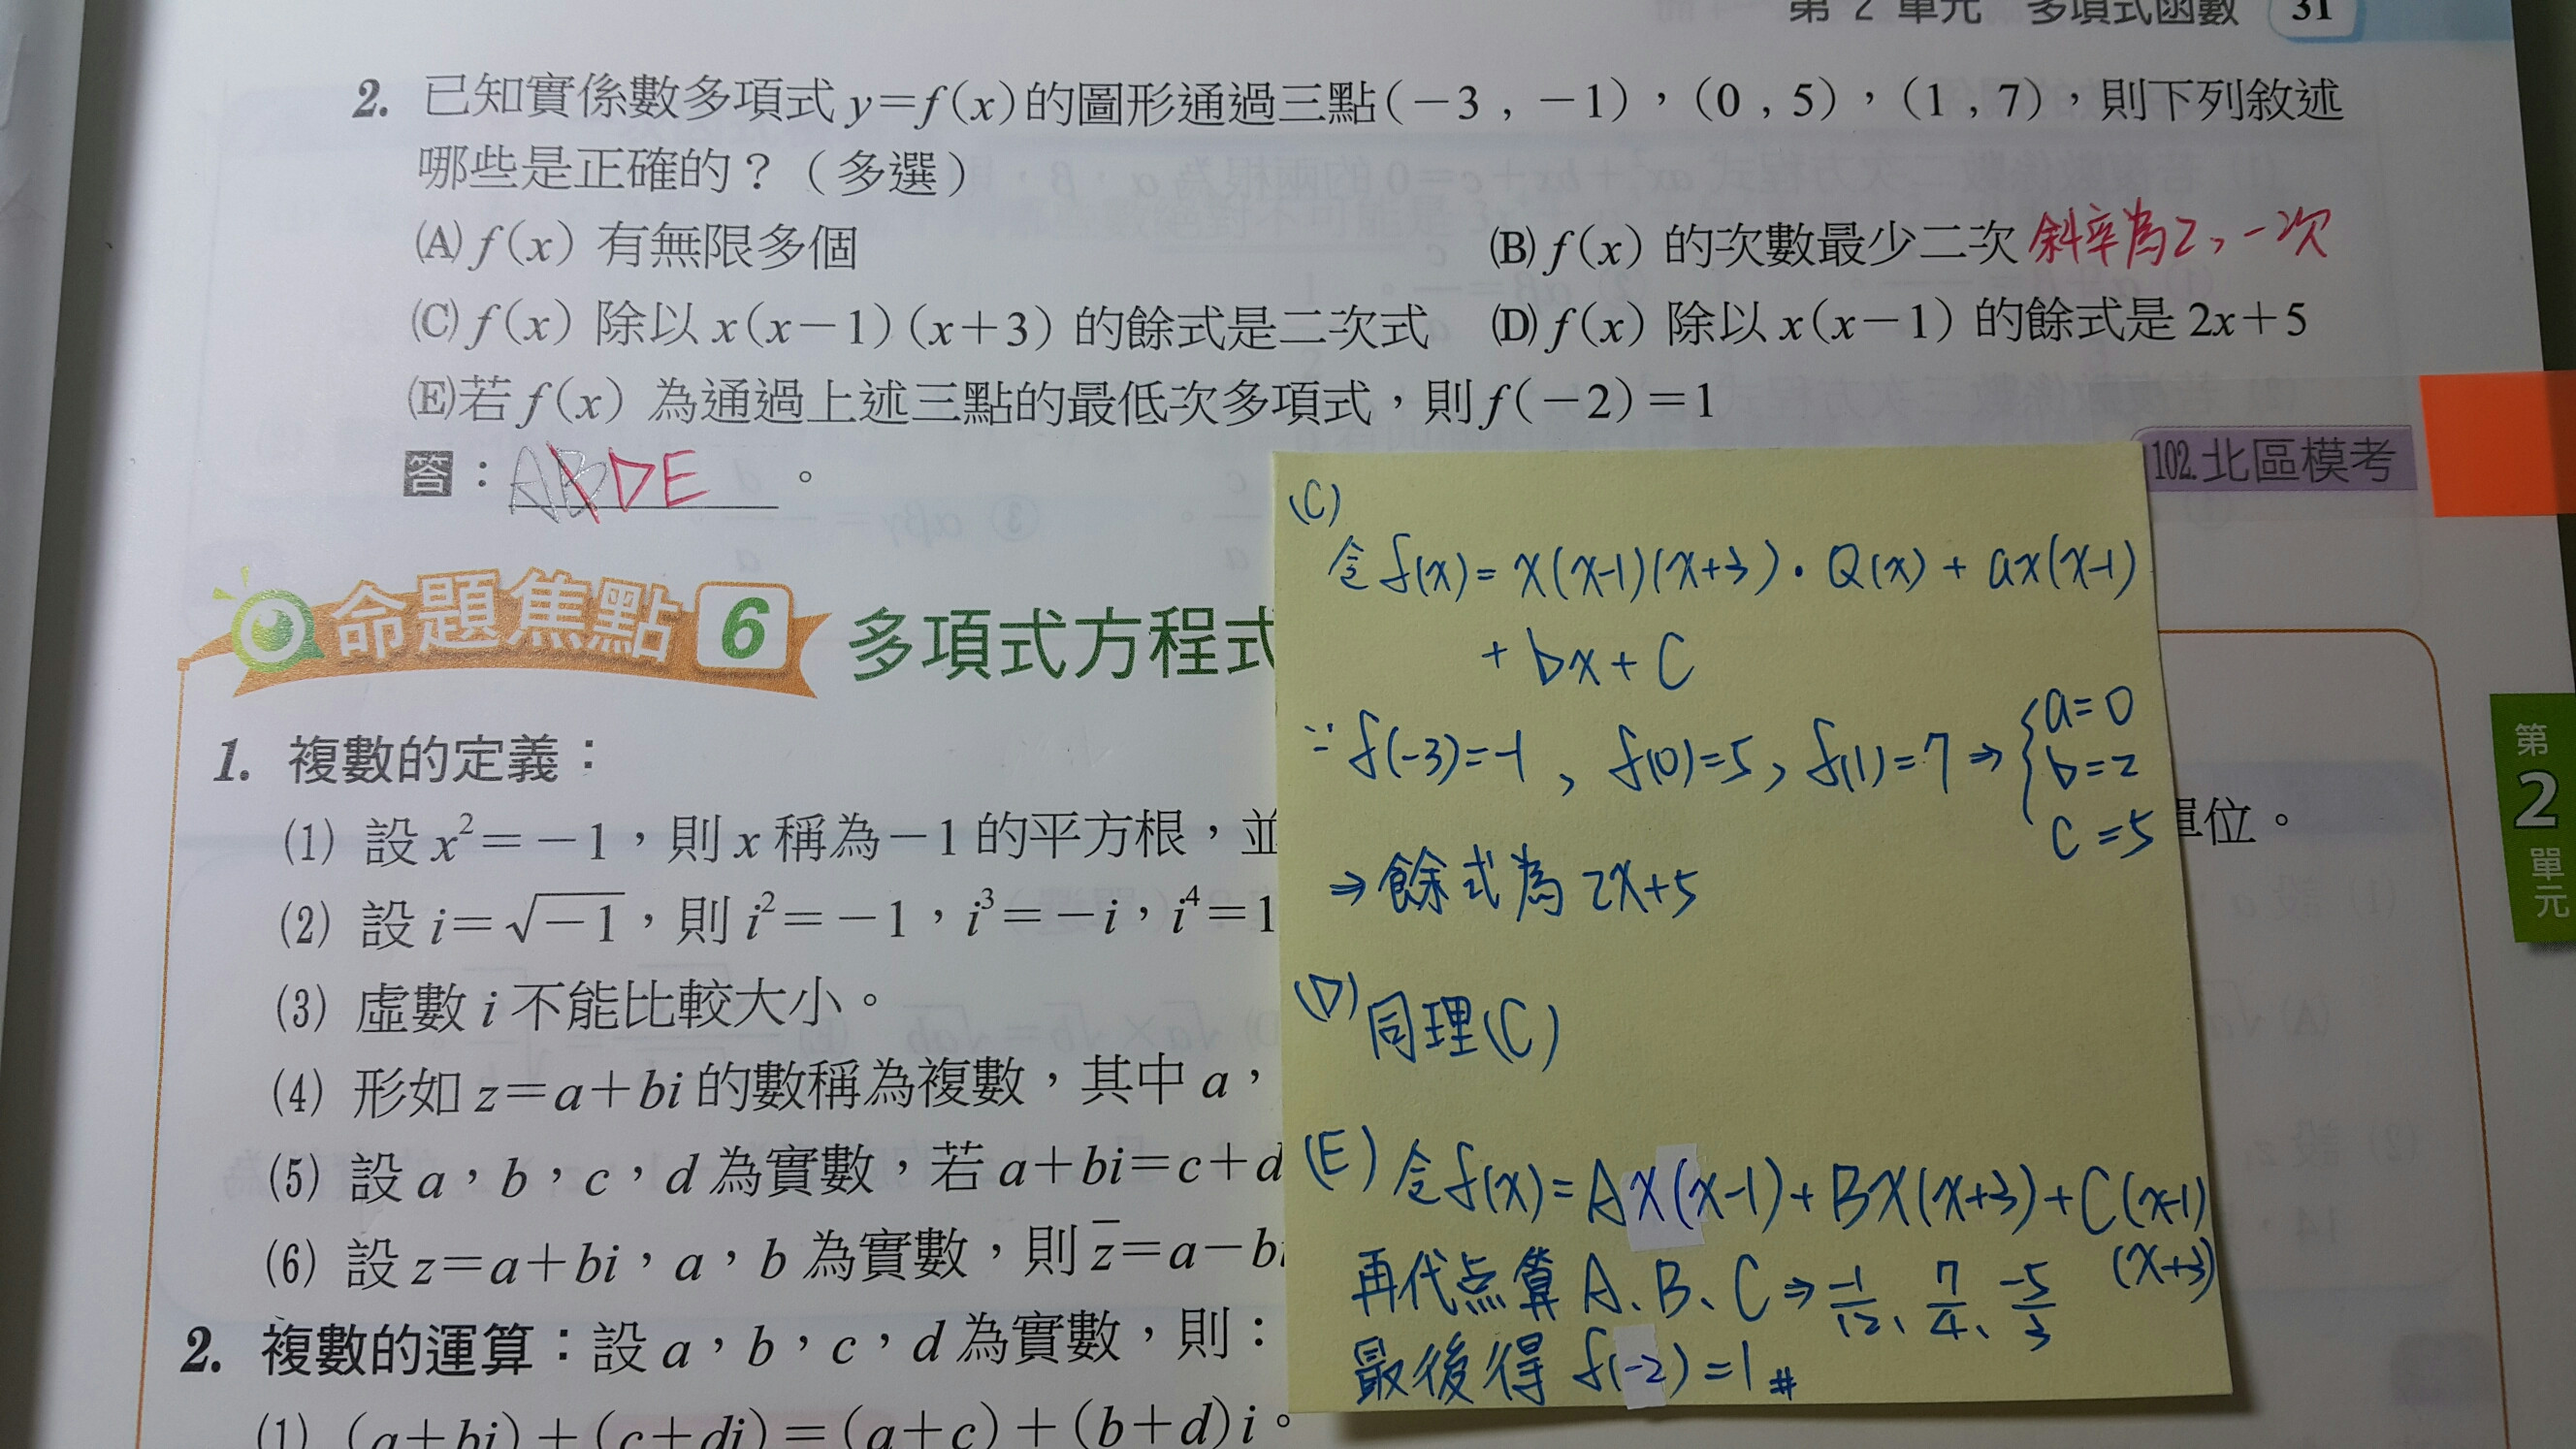 第 2 單元 多項式函數 31
2. 已知實係數多項式 y=f(x)的圖形通過三點(-3 , -1),(0 , 5),(1 , 7),則下列敘述
哪些是正確的?(多選)
(A) f(x) 有無限多個 (B) f(x) 的次數最少二次 斜率為2,一次
(C) f(x) 除以 x(x-1)(x+3) 的餘式是二次式 (D) f(x) 除以 x(x-1) 的餘式是 2x+5
(E)若 f(x) 為通過上述三點的最低次多項式,則 f(-2)=1
答:ABDE。
102.北區模考
(C)
令 f(x)= x(x-1)(x+3)・Q(x) + ax(x-1)
+ bx + C
∵ f(-3)=-1 , f(0)=5, f(1)=7 ⇒ { a=0
b=2
C=5
⇒ 餘式為 2x+5
(D) 同理(C)
(E) 令f(x)= Ax(x-1)+Bx(x+3)+C(x-1)
(x+3)
再代点算 A、B、C ⇒ -1/12、7/4、-5/3
最後得 f(-2)=1 #
命題焦點 6 多項式方程式
1. 複數的定義:
(1) 設 x²=-1,則 x 稱為-1 的平方根,並
單位。
(2) 設 i=√-1,則 i²=-1,i³=-i,i⁴=1
(3) 虛數 i 不能比較大小。
(4) 形如 z=a+bi 的數稱為複數,其中 a,
(5) 設 a,b,c,d 為實數,若 a+bi=c+d
(6) 設 z=a+bi,a,b 為實數,則 z̅=a-bi
2. 複數的運算:設 a,b,c,d 為實數,則:
(1) (a+bi)+(c+di)=(a+c)+(b+d)i。
第
2
單
元